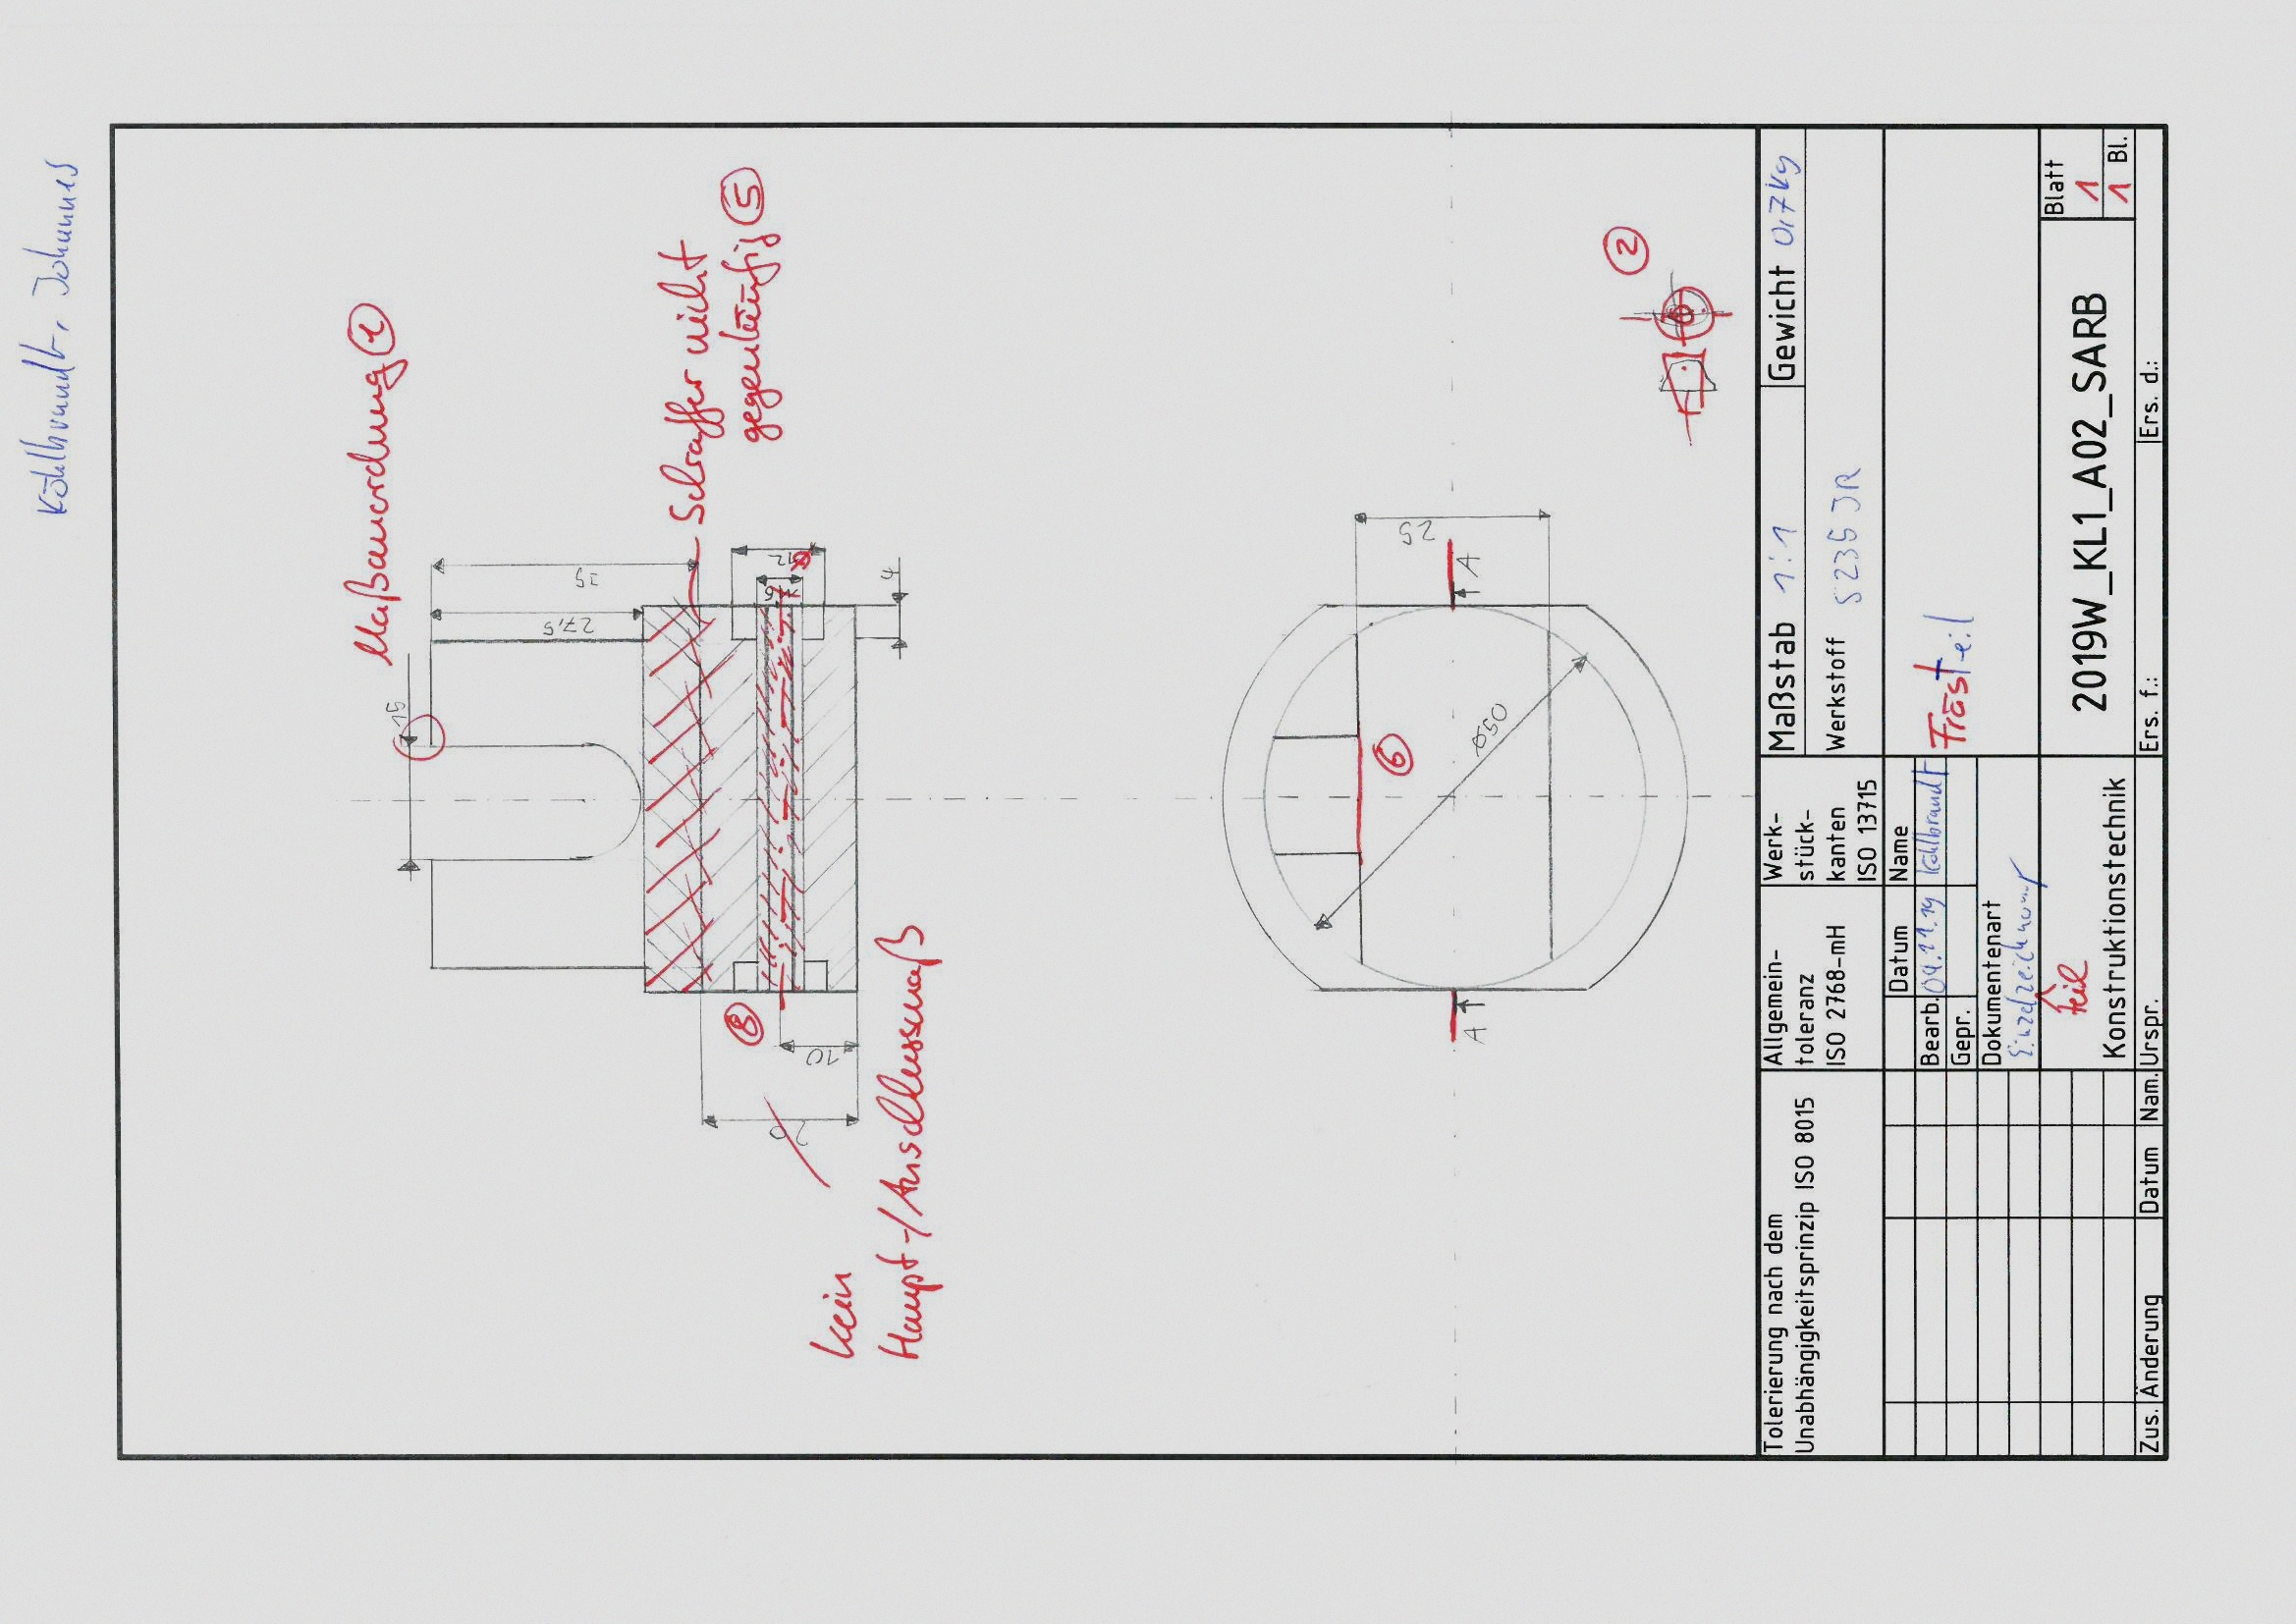 Maßanordnung 1
Schraffer nicht
gegenläufig 5
15
27,5
35
12
6
4
8
10
20
kein
Haupt-/Anschlussmaß
25
A
A
Ø50
6
2
Tolerierung nach dem
Unabhängigkeitsprinzip ISO 8015
Allgemein-
toleranz
ISO 2768-mH
Werk-
stück-
kanten
ISO 13715
Maßstab 1:1
Gewicht 0,7kg
Werkstoff S235JR
Datum
Name
Bearb. 04.11.19
Gepr.
Frästeil
Dokumentenart
teil
Konstruktionstechnik
2019W_KL1_A02_SARB
Blatt
1
1 Bl.
Zus.
Änderung
Datum
Nam.
Urspr.
Ers. f.:
Ers. d.: